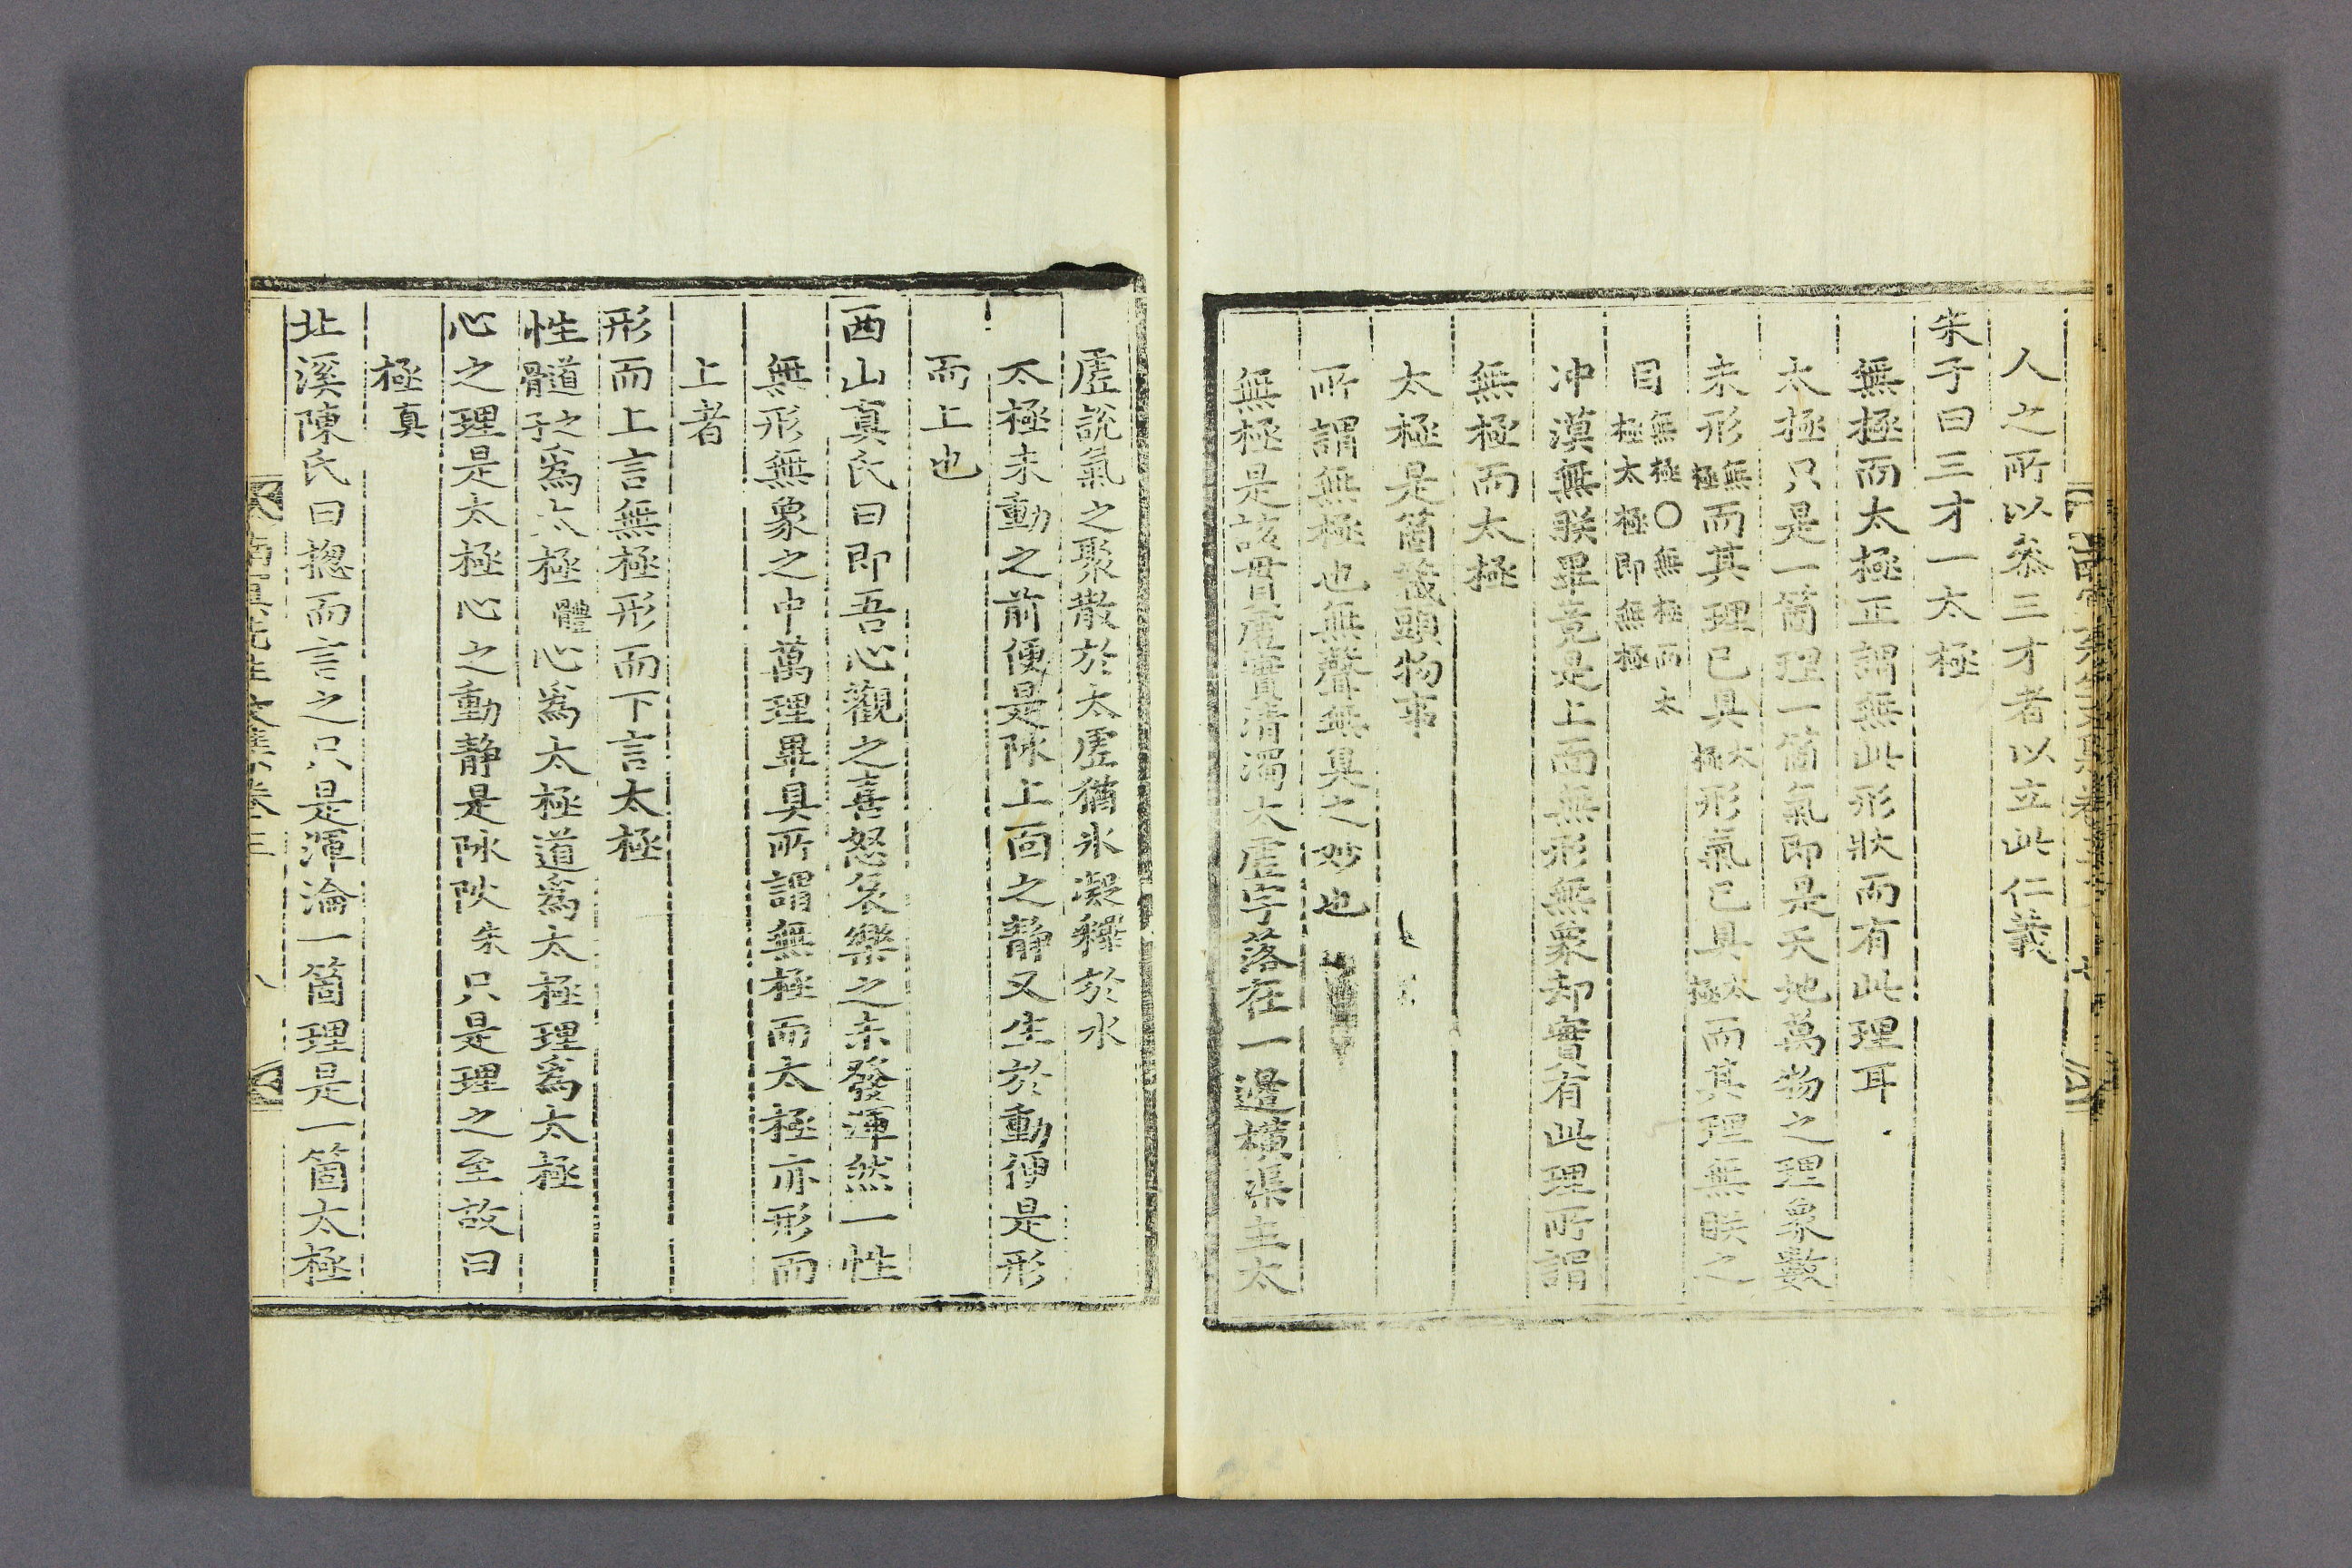 人之所以叅三才者以立此仁義
朱子曰三才一太極
無極而太極正謂無此形狀而有此理耳
太極只是一箇理一箇氣即是天地萬物之理象數
未形無極而其理已具太極形氣已具太極而其理無眹之
目無極〇無極而太極太極即無極
冲漠無眹畢竟是上面無形無象却實有此理所謂
無極而太極
太極是箇藏頭物事
所謂無極也無聲無臭之妙也
無極是該貫虛實清濁太虛字落在一邉橫渠主太
虛說氣之聚散於太虛猶氷凝釋於水
太極未動之前便是陰上面之靜又生於動便是形
而上也
西山真氏曰即吾心觀之喜怒哀樂之未發渾然一性
無形無象之中萬理畢具所謂無極而太極亦形而
上者
形而上言無極形而下言太極
性道之髓子爲太極體心爲太極道爲太極理爲太極
心之理是太極心之動靜是陰陽朱只是理之至故曰
極真
北溪陳氏曰揔而言之只是渾淪一箇理是一箇太極